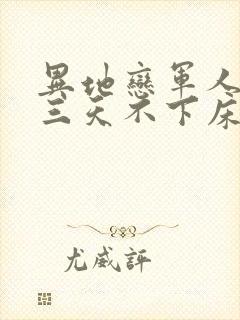 異地戀軍人
三天不下床
尤威評